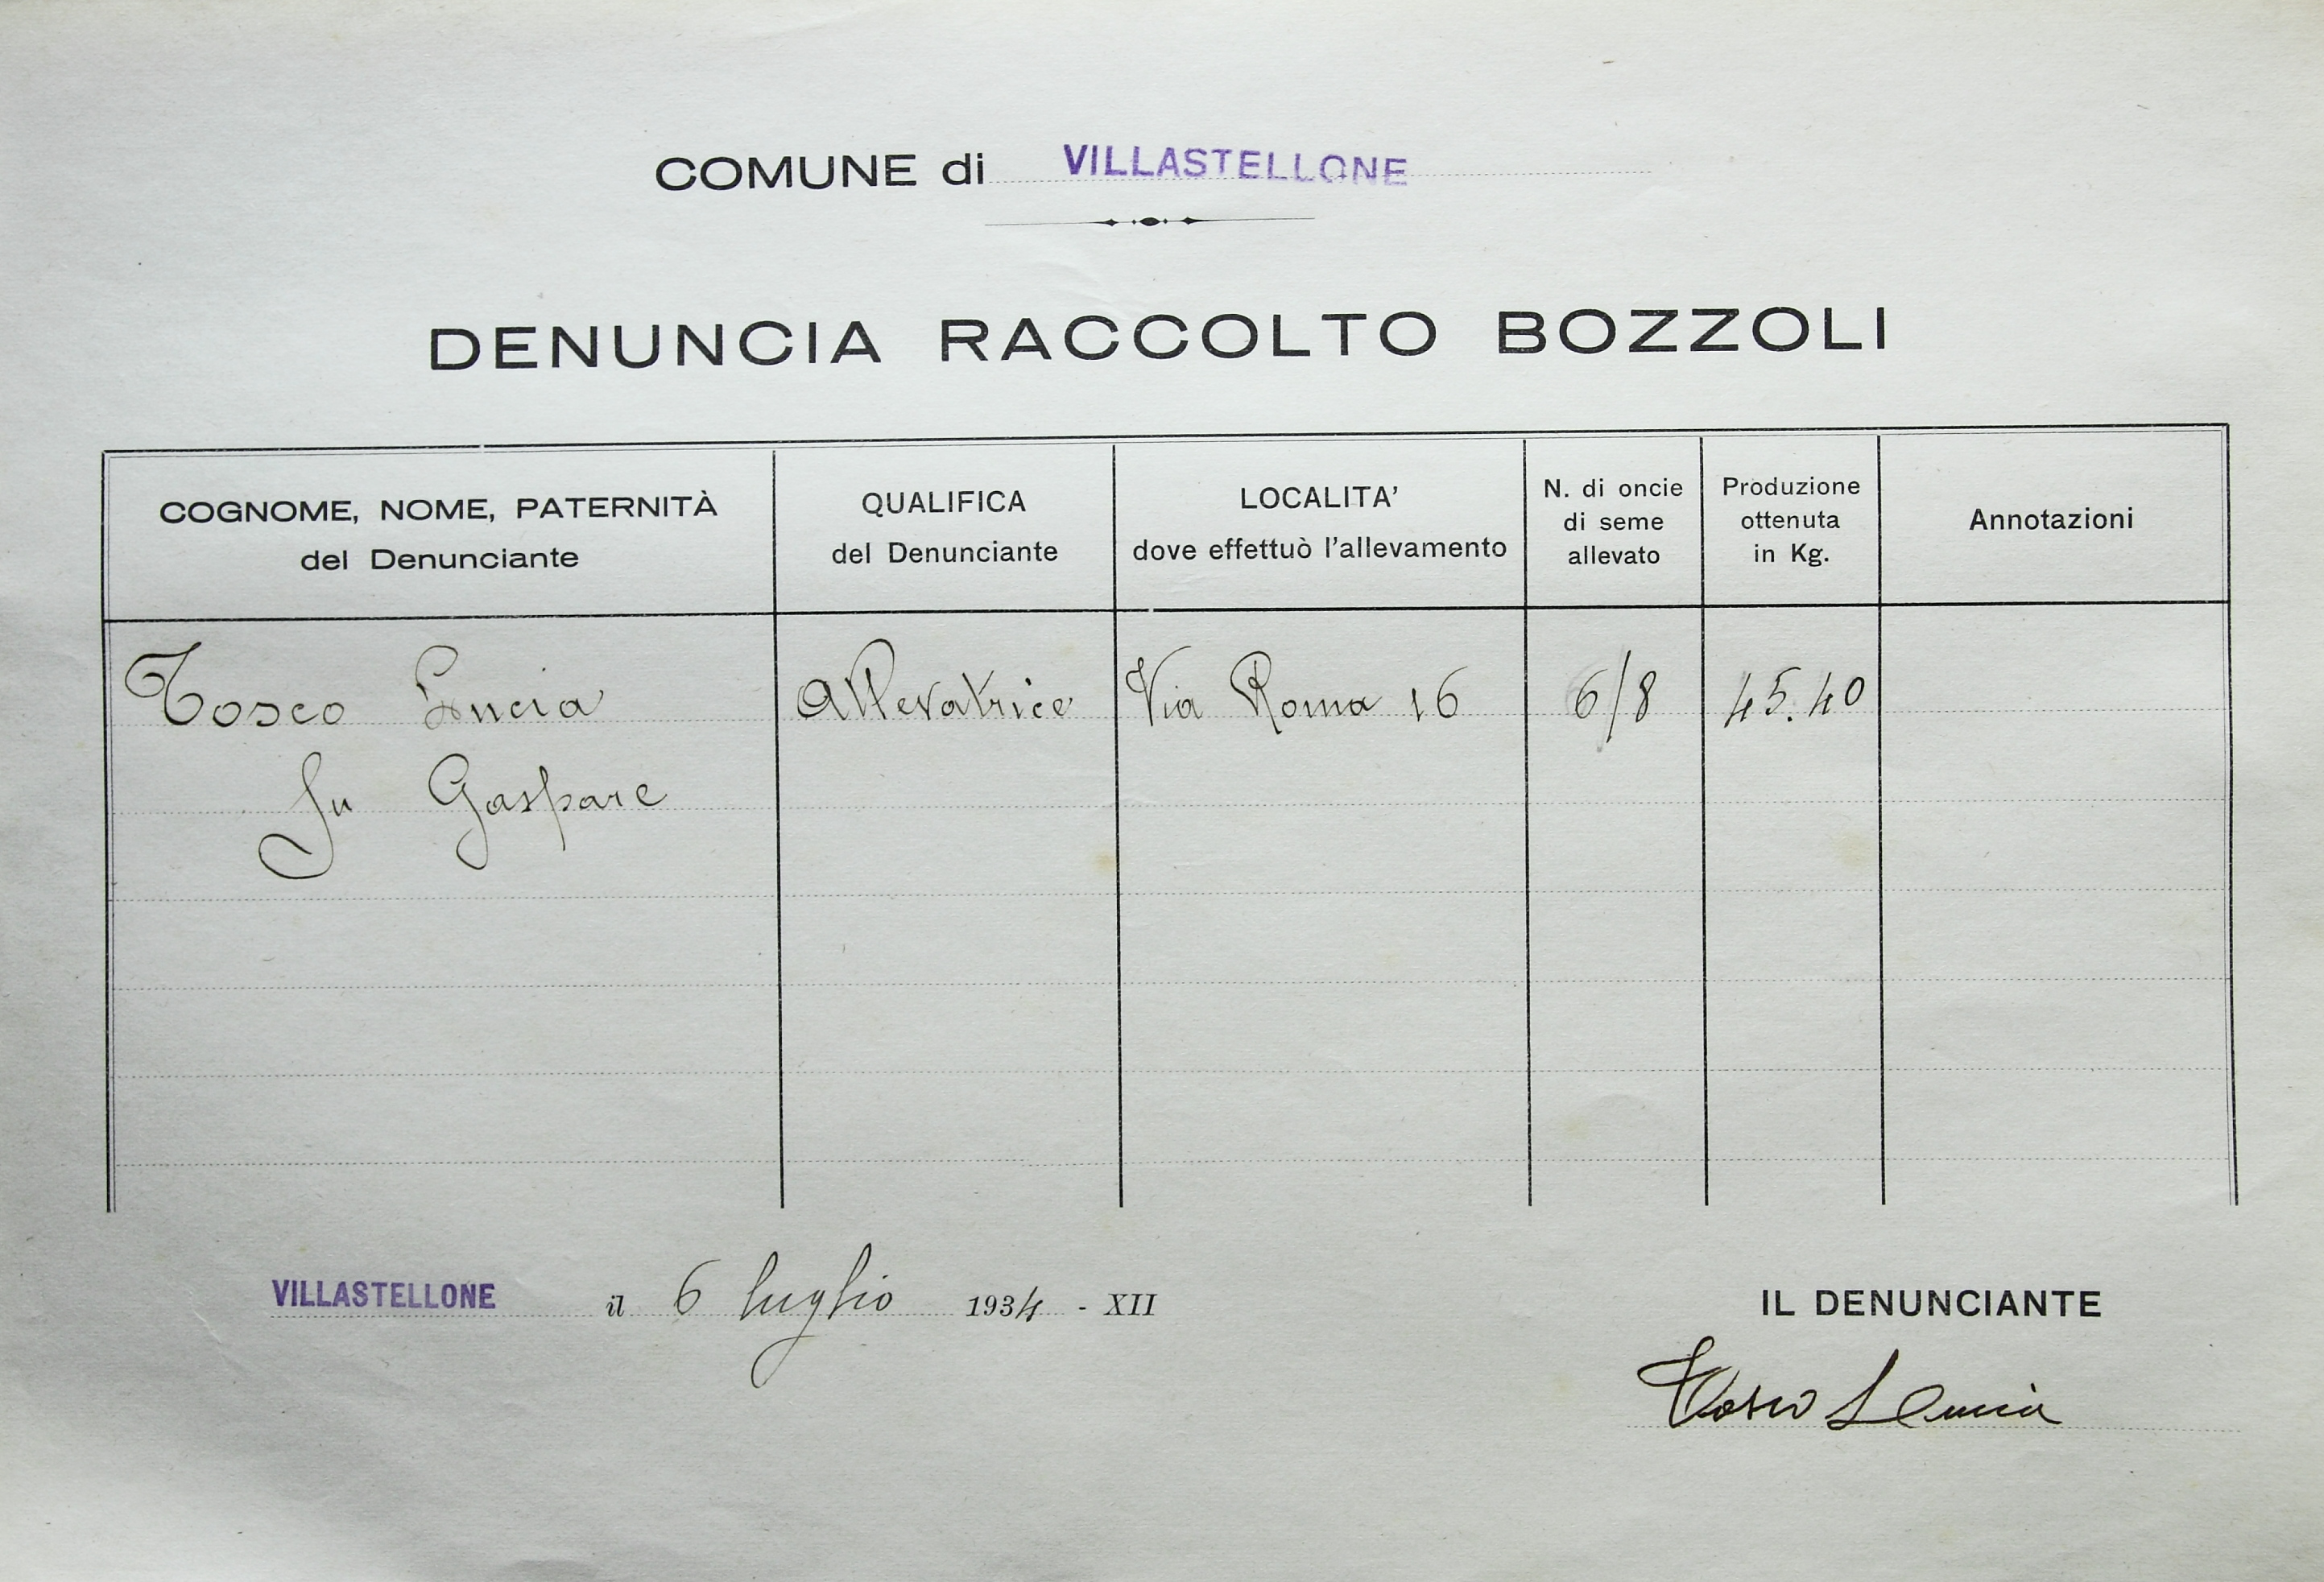 COMUNE di VILLASTELLONE
DENUNCIA RACCOLTO BOZZOLI
COGNOME, NOME, PATERNITÀ
del Denunciante
QUALIFICA
del Denunciante
LOCALITA'
dove effettuò l'allevamento
N. di oncie
di seme
allevato
Produzione
ottenuta
in Kg.
Annotazioni
Tosco Lucia Allevatrice Via Roma 16 6/8 45.40
fu Gaspare
VILLASTELLONE il 6 luglio 1934 - XII
IL DENUNCIANTE
Tosco Lucia